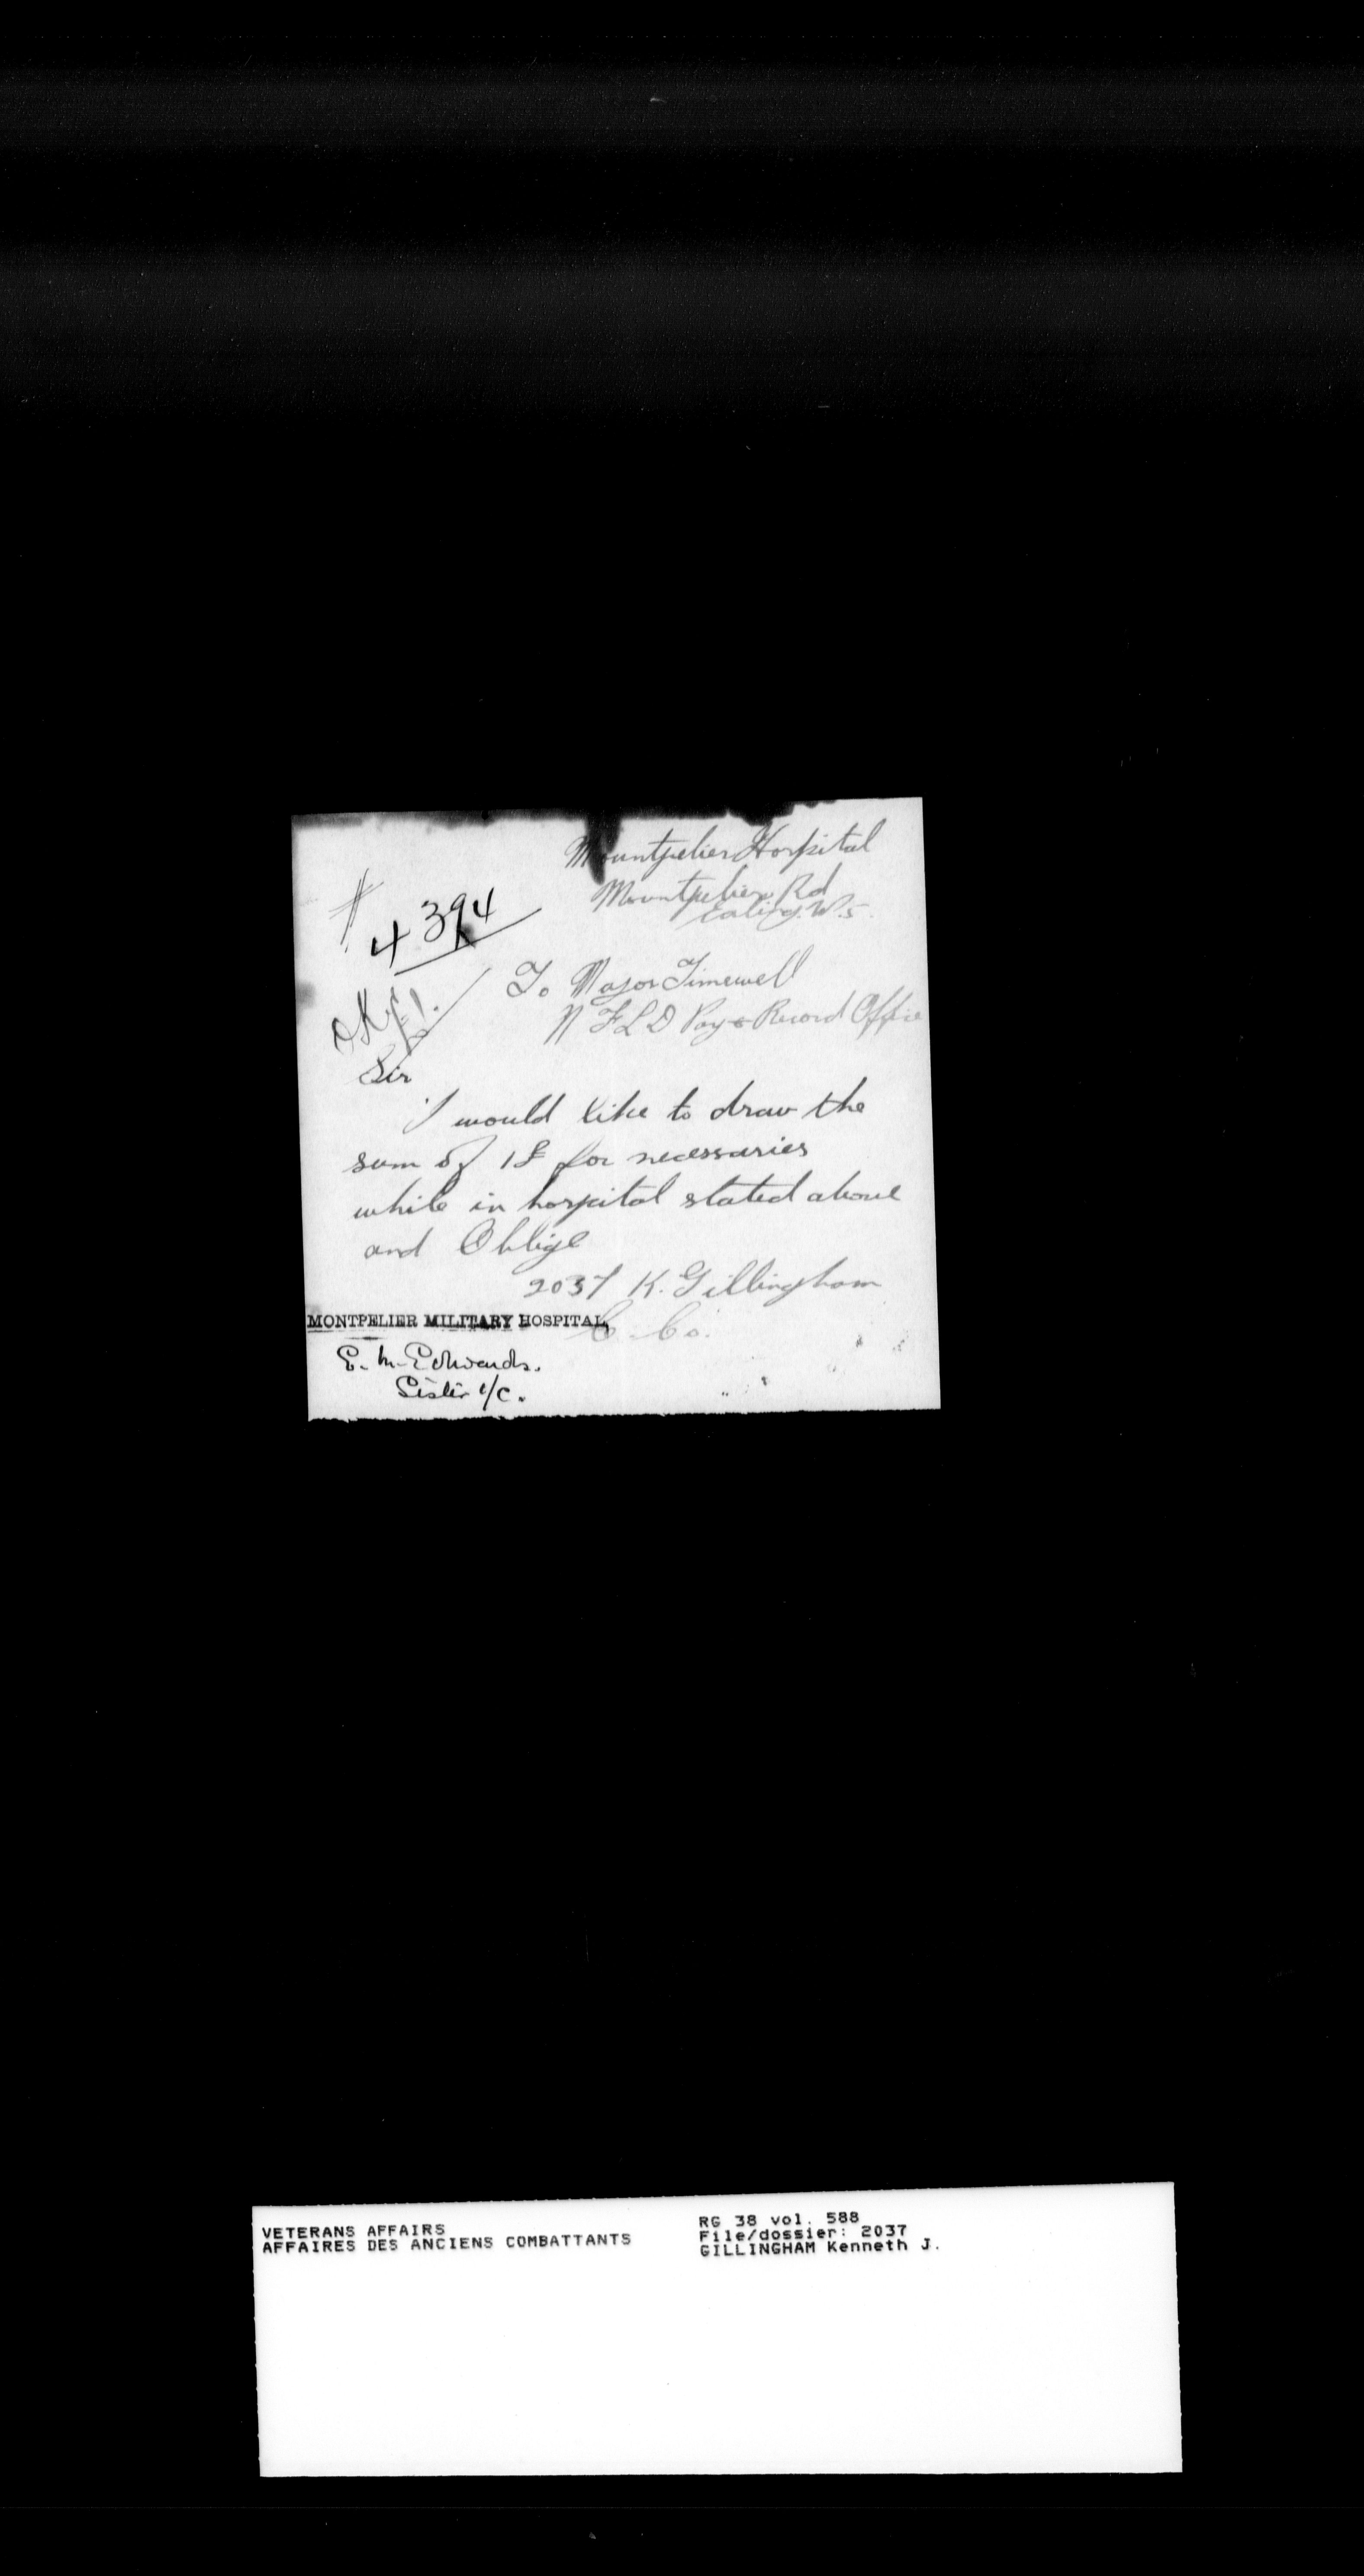 Mountpelier Hospital
Mountpelier Rd
Ealing. W. 5.
#
4394
OK £1.
To Major Timewell
NFLD Pay & Record Office
Sir
I would like to draw the
sum of 1£ for necessaries
while in hospital stated above
and Oblige
2037 K. Gillingham
C. Co.
MONTPELIER MILITARY HOSPITAL
E. M. Edwards.
Sister i/c.
VETERANS AFFAIRS
AFFAIRES DES ANCIENS COMBATTANTS
RG 38 vol. 588
File/dossier: 2037
GILLINGHAM Kenneth J.